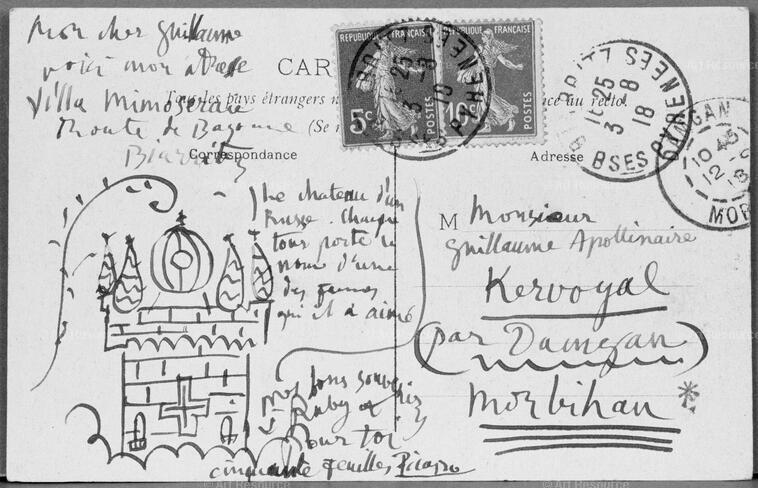 Mon cher Guillaume
voici mon adresse
Villa Mimoseraie
Route de Bayonne
Biarritz
CAR
Tous les pays étrangers n
ce au recto.
(Se
Correspondance
Adresse
REPUBLIQUE FRANÇAISE
5c
REPUBLIQUE FRANÇAISE
10c
16 25
3 - 8
18
BSES PYRENEES
DAMGAN
10 45
12 - 8
18
MOR
Le chateau d'un
Russe. Chaque
tour porte le
nom d'une
des femmes
qui il a aimé
Mes bons souvenirs
a Ruby et
pour toi
cinquante feuilles Picasso
M Monsieur
Guillaume Apollinaire
Kervoyal
(par Damgan)
Morbihan
© Art Resource